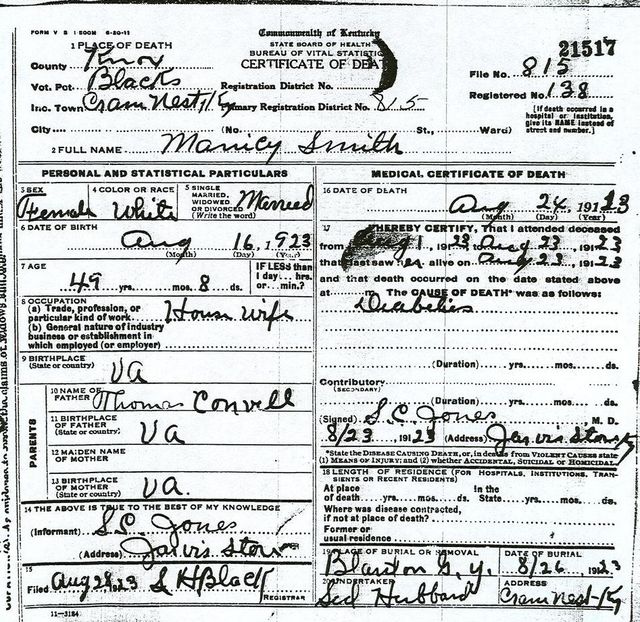 FORM V S 1-500M 6-20-11
Commonwealth of Kentucky
STATE BOARD OF HEALTH
BUREAU OF VITAL STATISTIC
CERTIFICATE OF DEAT
21517
1 PLACE OF DEATH
County Knox
Vot. Pct. Blacks
Registration District No.
File No. 815
Inc. Town Cram Nest, Ky
Primary Registration District No. 815
Registered No. 138
City (No. St., Ward)
[If death occurred in a hospital or institution, give its NAME instead of street and number.]
2 FULL NAME Manicy Smith
PERSONAL AND STATISTICAL PARTICULARS
3 SEX Female
4 COLOR OR RACE White
5 SINGLE MARRIED, WIDOWED OR DIVORCED (Write the word) Married
6 DATE OF BIRTH Aug 16, 1923
(Month) (Day) (Year)
7 AGE 49 yrs. mos. 8 ds.
IF LESS than 1 day... hrs. or... min.?
8 OCCUPATION
(a) Trade, profession, or particular kind of work House wife
(b) General nature of industry business or establishment in which employed (or employer)
9 BIRTHPLACE (State or country) VA
PARENTS
10 NAME OF FATHER Thomas Convell
11 BIRTHPLACE OF FATHER (State or country) VA
12 MAIDEN NAME OF MOTHER
13 BIRTHPLACE OF MOTHER (State or country) VA.
14 THE ABOVE IS TRUE TO THE BEST OF MY KNOWLEDGE
(Informant) S.C. Jones
(Address) Jarvis Store
15
Filed Aug 28 23 S H Black
REGISTRAR
11-3184
MEDICAL CERTIFICATE OF DEATH
16 DATE OF DEATH
Aug 24, 191 23
(Month) (Day) (Year)
17 I HEREBY CERTIFY, That I attended deceased
from Aug 1, 1923 Aug 23, 1923
that I last saw her alive on Aug 23, 1923
and that death occurred on the date stated above
at m. The CAUSE OF DEATH* was as follows:
Diabetes
(Duration) yrs. mos. ds.
Contributory
(SECONDARY)
(Duration) yrs. mos. ds.
(Signed) S.C. Jones M. D.
8/23 191 23 (Address) Jarvis Store Ky
*State the DISEASE CAUSING DEATH, or, in deaths from VIOLENT CAUSES state (1) MEANS OF INJURY; and (2) whether ACCIDENTAL, SUICIDAL or HOMICIDAL.
18 LENGTH OF RESIDENCE (FOR HOSPITALS, INSTITUTIONS, TRANSIENTS OR RECENT RESIDENTS)
At place of death yrs. mos. ds. In the State yrs. mos. ds.
Where was disease contracted, if not at place of death?
Former or usual residence
19 PLACE OF BURIAL OR REMOVAL Blanton G. Y.
DATE OF BURIAL 8/26, 191 23
20 UNDERTAKER Sed Hubbard
ADDRESS Cram Nest-Ky